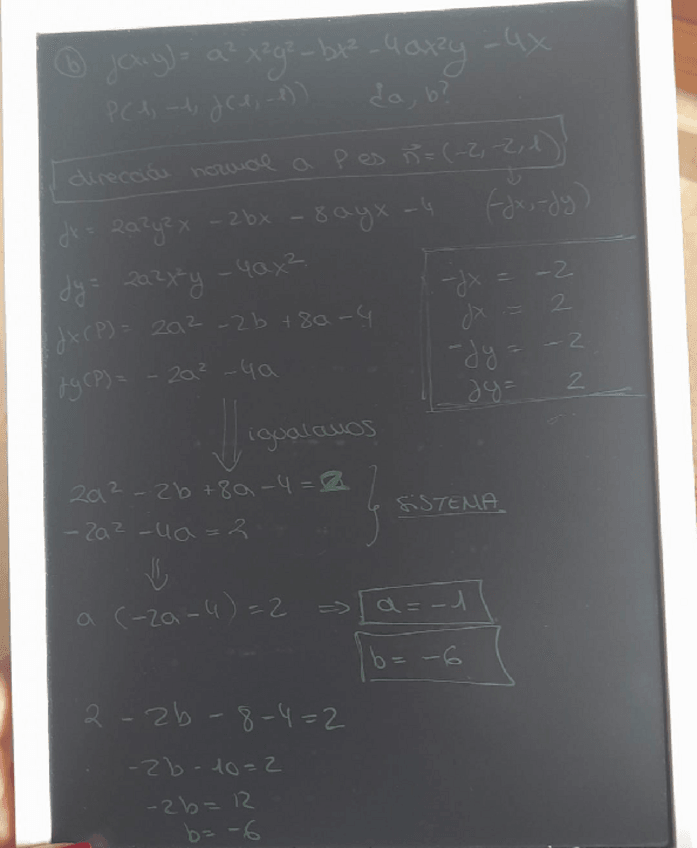 b) f(x,y) = a² x²y² - bx² - 4ax²y - 4x
P(1, -1, f(1,-1)) ¿a, b?
dirección normal a P es n⃗ = (-2, -2, 1)
(-fx, -fy)
fx = 2a²y²x - 2bx - 8ayx - 4
fy = 2a²x²y - 4ax²
fx(P) = 2a² - 2b + 8a - 4
fy(P) = -2a² - 4a
-fx = -2
fx = 2
-fy = -2
fy = 2
⇓ igualamos
2a² - 2b + 8a - 4 = 2
-2a² - 4a = 2
} SISTEMA
⇓
a (-2a - 4) = 2 ⇒ a = -1
b = -6
2 - 2b - 8 - 4 = 2
-2b - 10 = 2
-2b = 12
b = -6